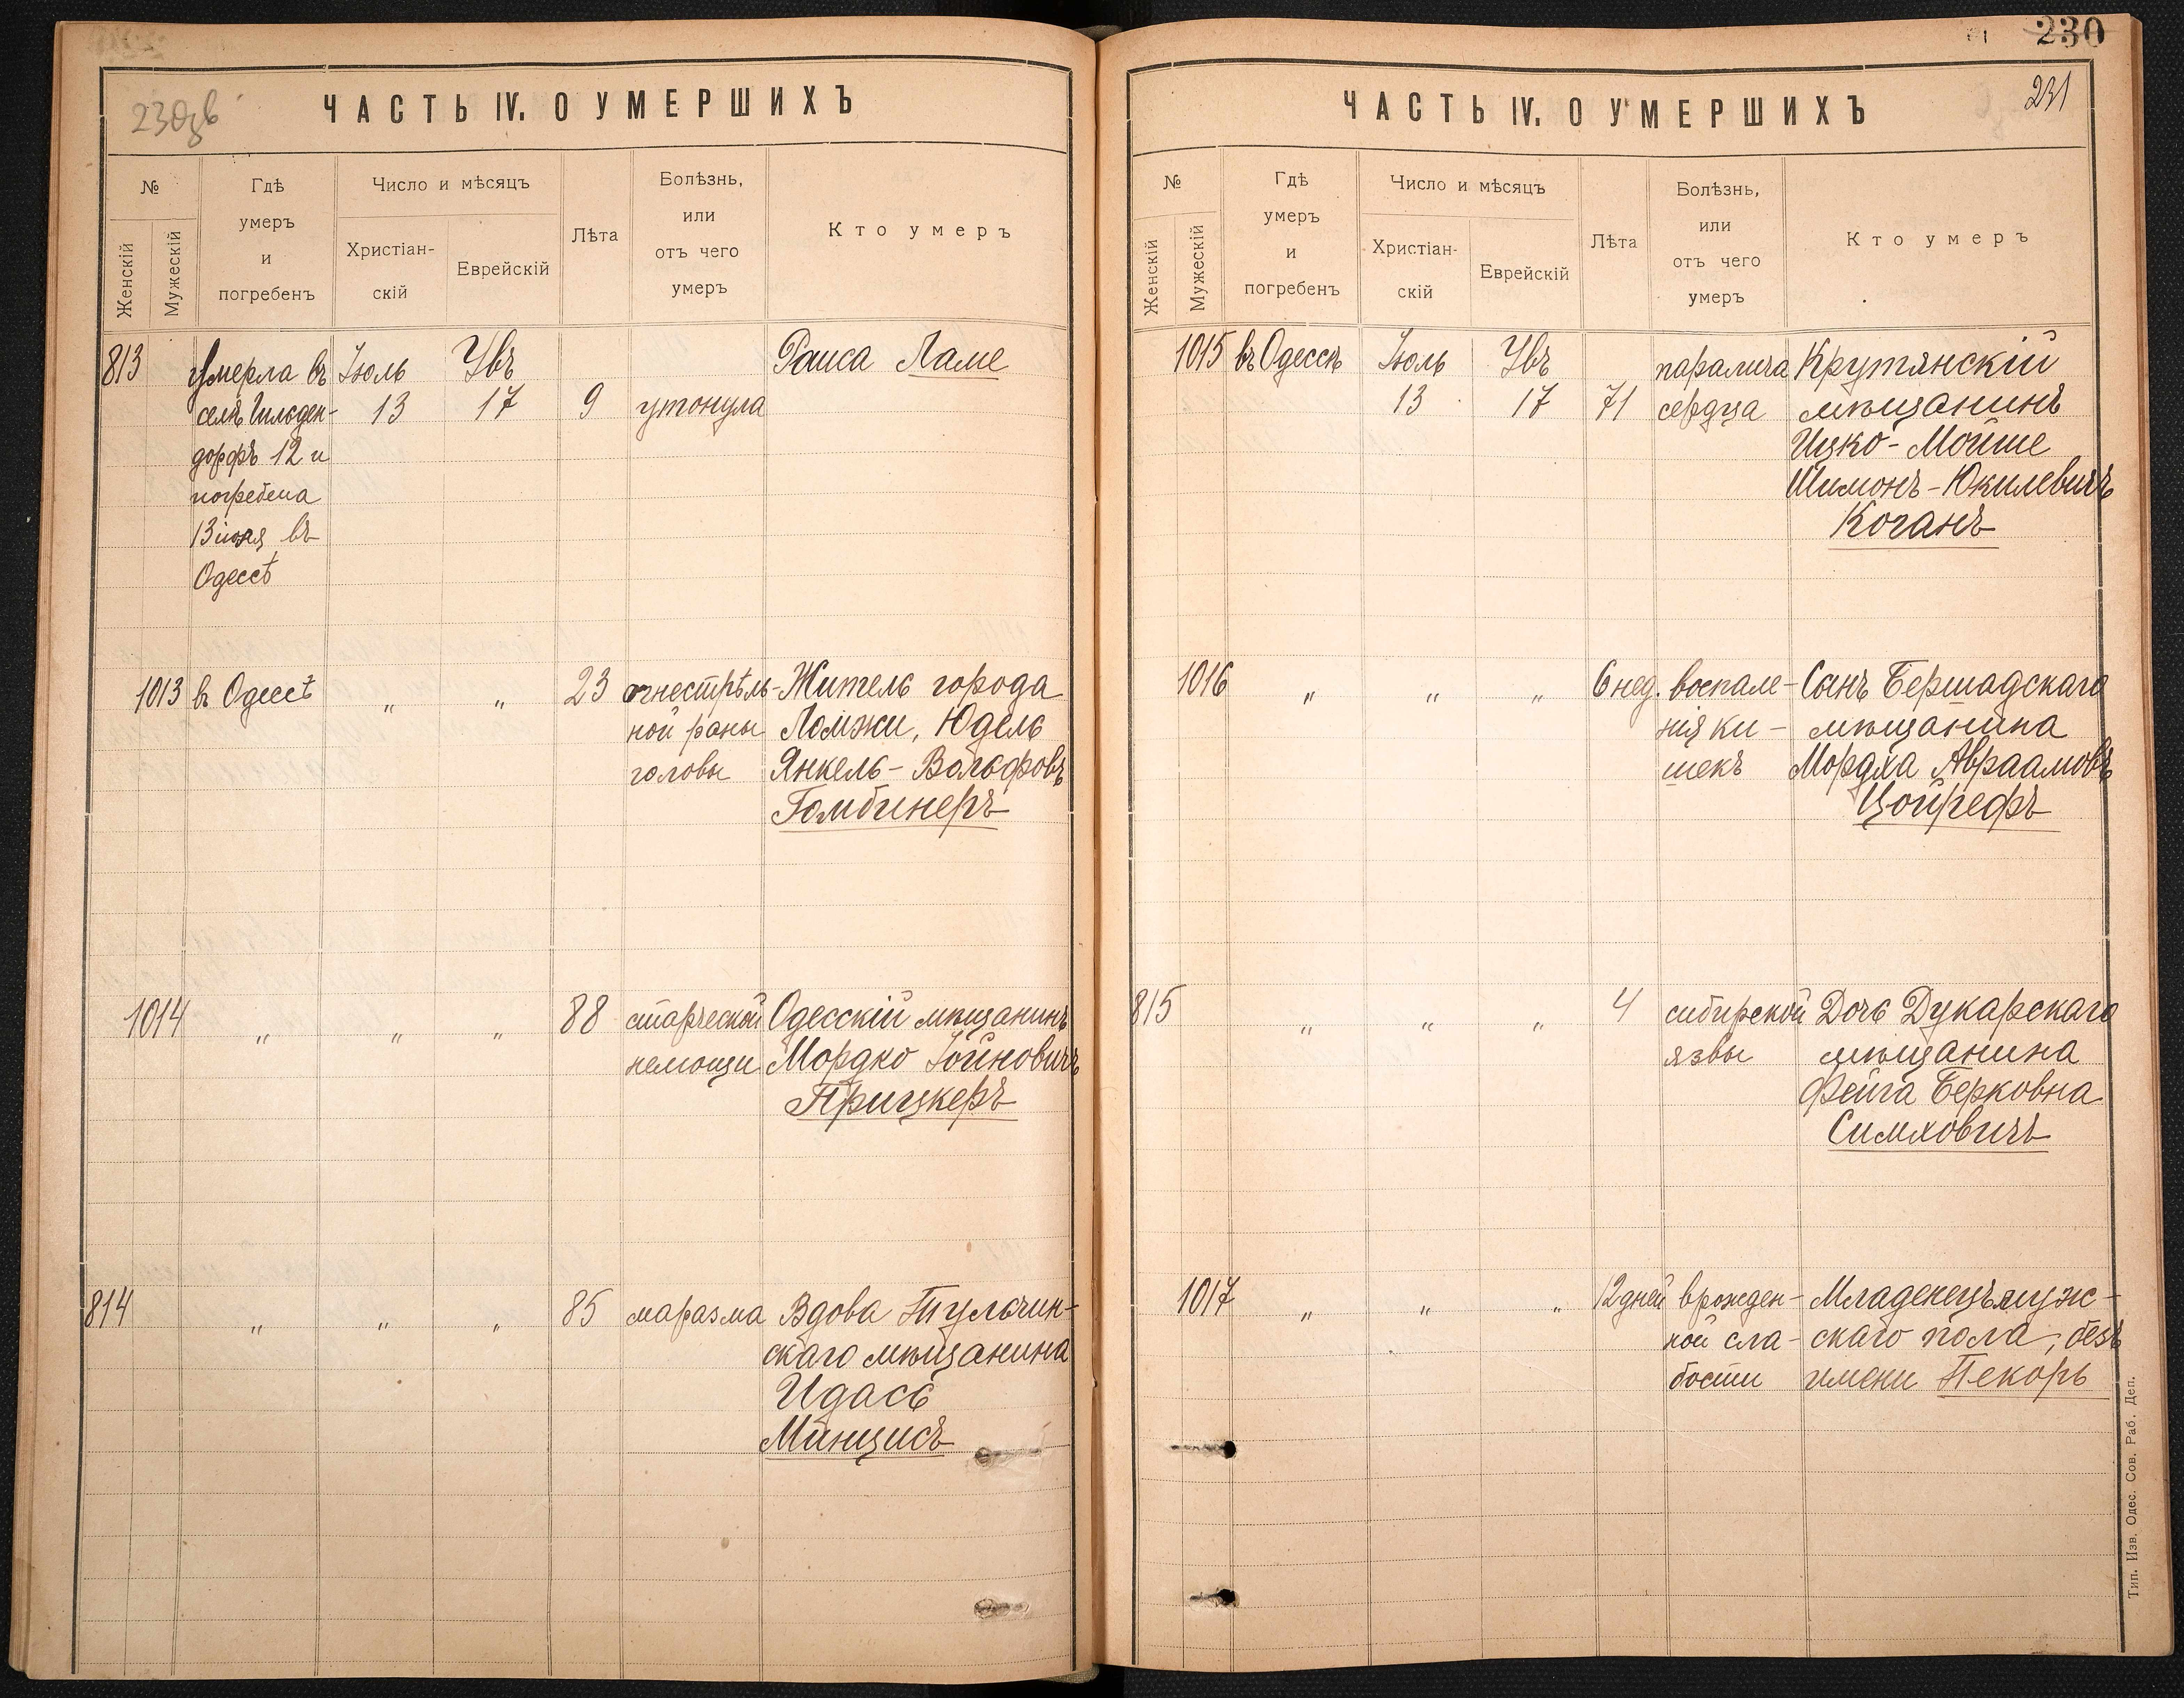 230об
ЧАСТЬ IV. О УМЕРШИХЪ
№
Женскій
Мужескій
Гдѣ
умеръ
и
погребенъ
Число и мѣсяцъ
Христіан-
скій
Еврейскій
Лѣта
Болѣзнь,
или
отъ чего
умеръ
Кто умеръ
813
Умерла въ
селѣ Гильден-
дорфѣ 12 и
погребена
13 іюля въ
Одессѣ
Іюль
13
Увъ
17
9
утонула
Раиса Ламе
1013
въ Одессѣ
"
"
23
огнестрѣль-
ной раны
головы
Житель города
Ломжи, Юдель
Янкель-Вольфовъ
Гомбинеръ
1014
"
"
"
88
старческой
немощи
Одесскій мѣщанинъ
Мордко Іойновичъ
Прицкеръ
814
"
"
"
85
маразма
Вдова Тульчин-
скаго мѣщанина
Идась
Минцисъ
230
231
ЧАСТЬ IV. О УМЕРШИХЪ
№
Женскій
Мужескій
Гдѣ
умеръ
и
погребенъ
Число и мѣсяцъ
Христіан-
скій
Еврейскій
Лѣта
Болѣзнь,
или
отъ чего
умеръ
Кто умеръ
1015
въ Одессѣ
Іюль
13
Увъ
17
71
паралича
сердца
Крутянскій
мѣщанинъ
Ицко-Мойше
Шимонъ-Юкилевичъ
Коганъ
1016
"
"
"
6 нед.
воспале-
нія ки-
шекъ
Сынъ Бершадскаго
мѣщанина
Мордха Авраамовъ
Цойрефъ
815
"
"
"
4
сибирской
язвы
Дочь Дукарскаго
мѣщанина
Фейга Берковна
Симховичъ
1017
"
"
"
12 дней
врожден-
ной сла-
бости
Младенецъ муж-
скаго пола, безъ
имени Пекоръ
Тип. Изв. Одес. Сов. Раб. Деп.